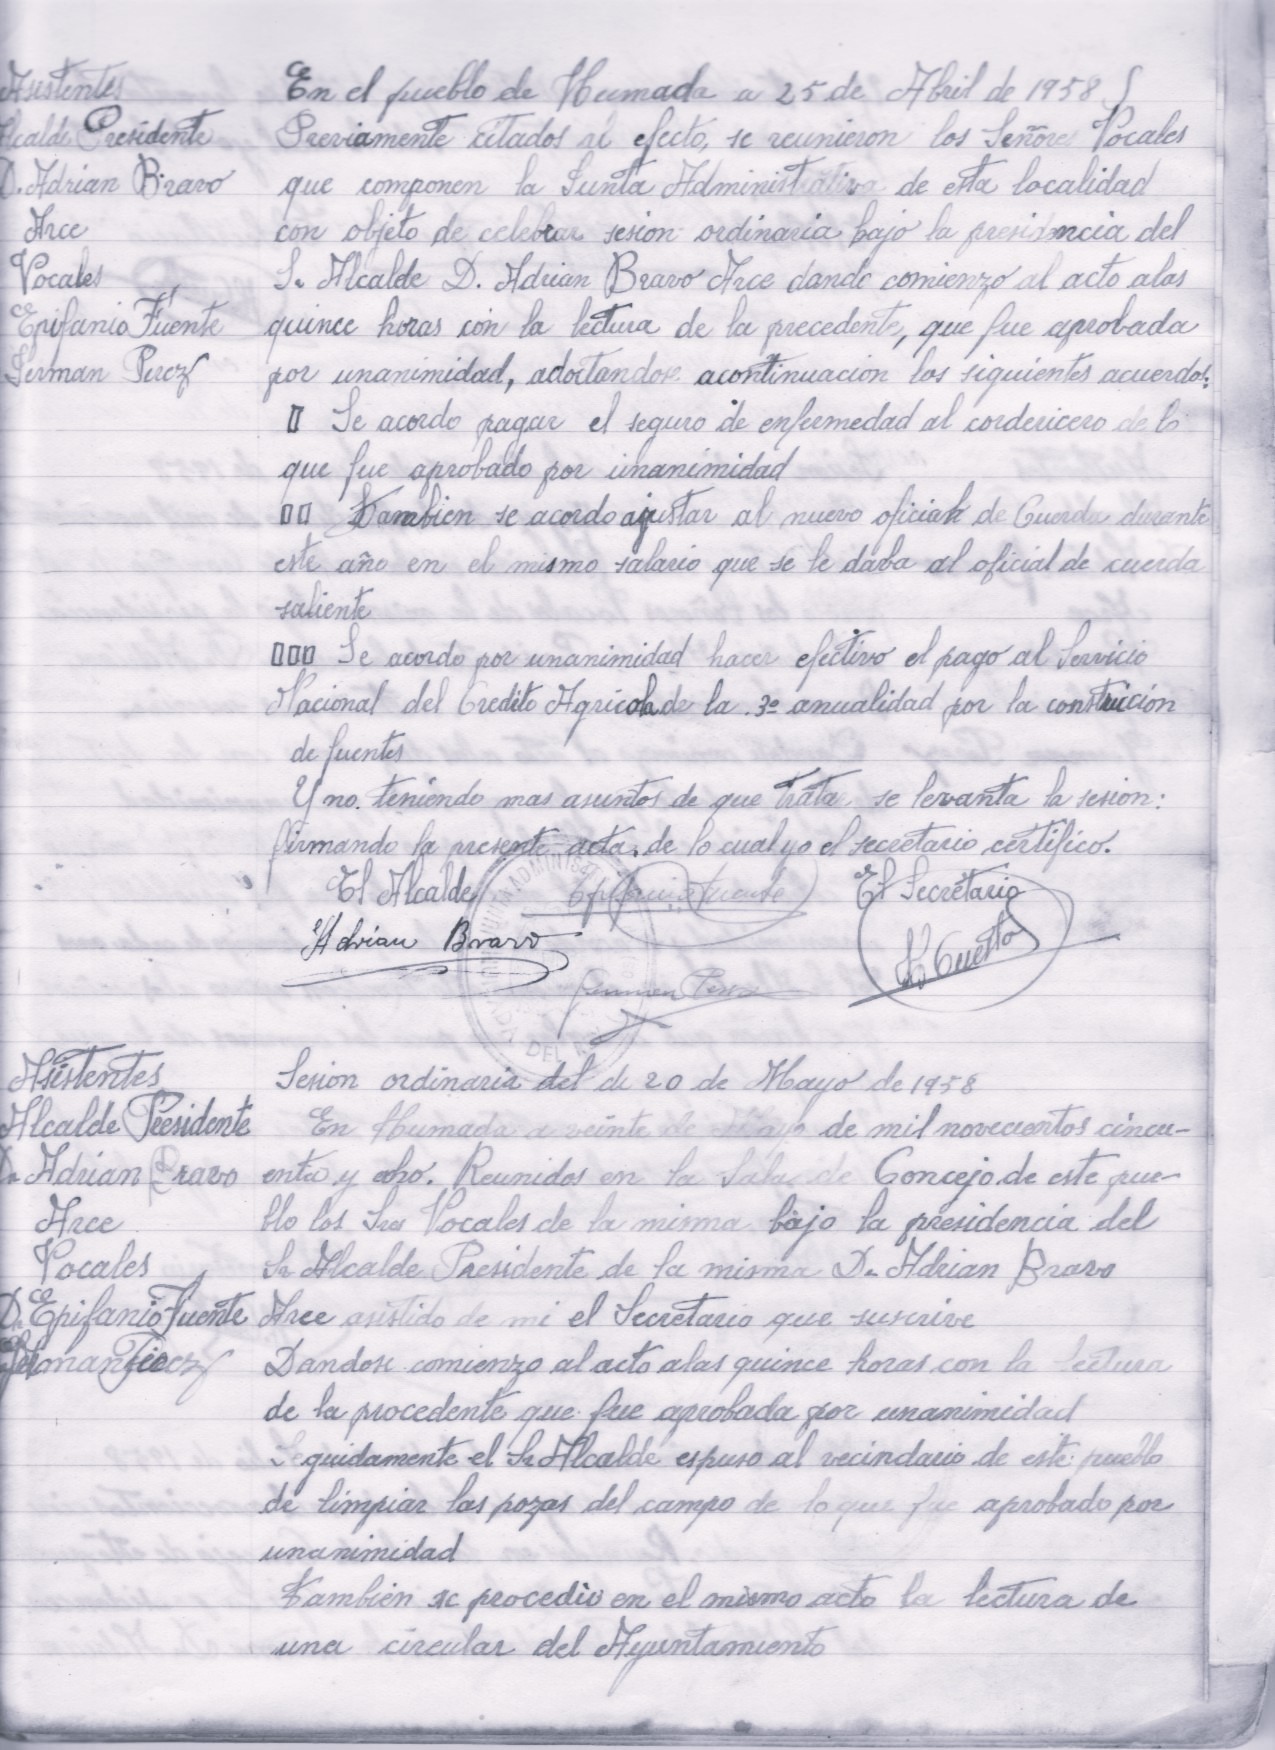 Asistentes
Alcalde Presidente
D. Adrian Bravo
Arce
Vocales
Epifanio Fuente
German Perez
En el pueblo de Humada a 25 de Abril de 1958
Previamente citados al efecto, se reunieron los Señores Vocales
que componen la Junta Administrativa de esta localidad
con objeto de celebrar sesion ordinaria bajo la presidencia del
Sr Alcalde D. Adrian Bravo Arce dando comienzo al acto alas
quince horas con la lectura de la precedente, que fue aprobada
por unanimidad, adoctandose acontinuacion los siguientes acuerdos:
I Se acordo pagar el seguro de enfermedad al cordericero de lo
que fue aprobado por unanimidad
II Tambien se acordo ajustar al nuevo oficial de Cuerda durante
este año en el mismo salario que se le daba al oficial de cuerda
saliente
III Se acordo por unanimidad hacer efectivo el pago al Servicio
Nacional del Credito Agricola de la 3ª anualidad por la construición
de fuentes
Y no teniendo mas asuntos de que tratar se levanta la sesion:
firmando la presente acta. de lo cual yo el secretario certifico.
El Alcalde Epifanio Fuente El Secretario
Adrian Bravo Cuesta
German Perez
JUNTA ADMINIS
DEL
Asistentes
Alcalde Presidente
Dn Adrian Bravo
Arce
Vocales
Dn Epifanio Fuente
German Perez
Sesion ordinaria del di 20 de Mayo de 1958
En Humada a veinte de Mayo de mil novecientos cincu-
enta y ocho. Reunidos en la Sala de Concejo de este pue-
blo los Sres Vocales de la misma bajo la presidencia del
Sr Alcalde Presidente de la misma Dn Adrian Bravo
Arce asistido de mi el Secretario que suscrive
Dandose comienzo al acto alas quince horas con la lectura
de la procedente que fue aprobada por unanimidad
Seguidamente el Sr Alcalde espuso al vecindario de este pueblo
de limpiar las pozas del campo de lo que fue aprobado por
unanimidad
Tambien se procedio en el mismo acto la lectura de
una circular del Ayuntamiento